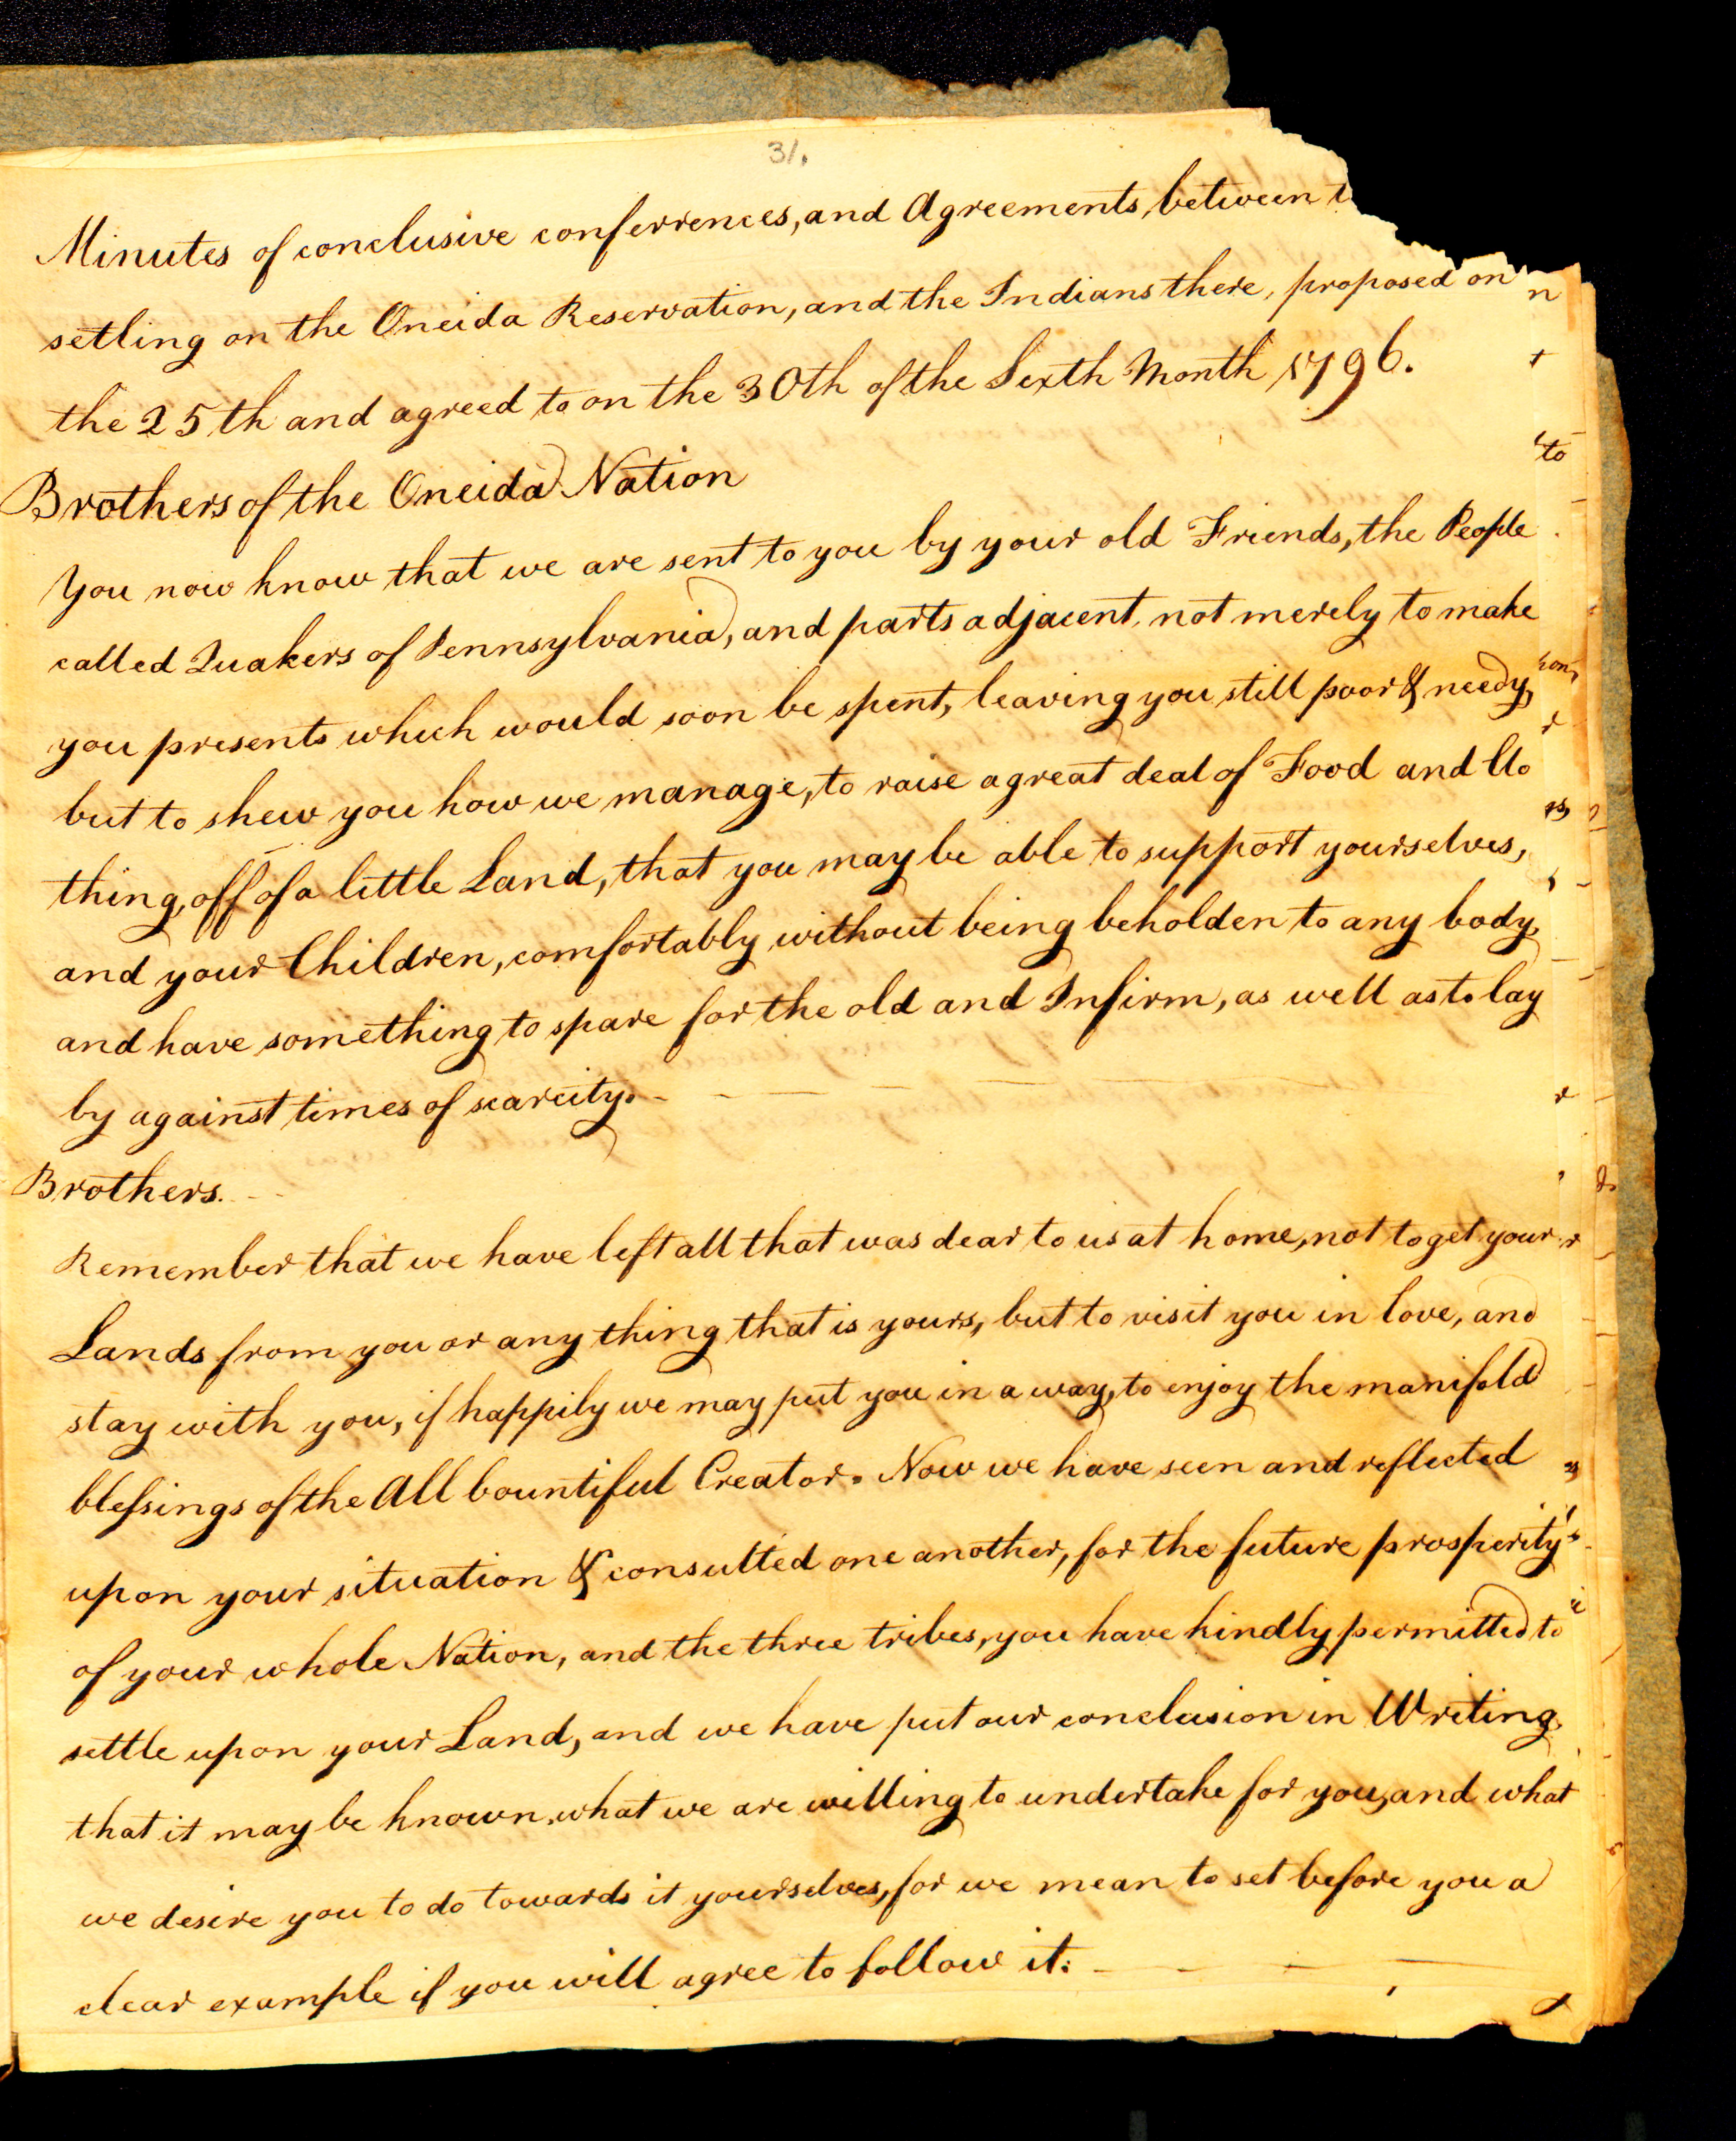 31.
Minutes of conclusive conferrences, and Agreements, between
setling on the Oneida Reservation, and the Indians there, proposed on
the 25th and agreed to on the 30th of the Sixth Month 1796.
Brothers of the Oneida Nation
You now know that we are sent to you by your old Friends, the People
called Quakers of Pennsylvania, and parts adjacent, not merely to make
you presents which would soon be spent, leaving you still poor & needy,
but to shew you how we manage, to raise a great deal of Food and Clo
thing, off of a little Land, that you may be able to support yourselves,
and your Children, comfortably without being beholden to any body,
and have something to spare for the old and Infirm, as well as to lay
by against times of scarcity.
Brothers.
Remember that we have left all that was dear to us at home, not to get your
Lands from you or any thing that is yours, but to visit you in love, and
stay with you, if happily we may put you in a way, to enjoy the manifold
blessings of the All bountiful Creator. Now we have seen and reflected
upon your situation & consulted one another, for the future prosperity
of your whole Nation, and the three tribes, you have kindly permitted to
settle upon your Land, and we have put our conclusion in Writing,
that it may be known, what we are willing to undertake for you, and what
we desire you to do towards it yourselves, for we mean to set before you a
clear example if you will agree to follow it: